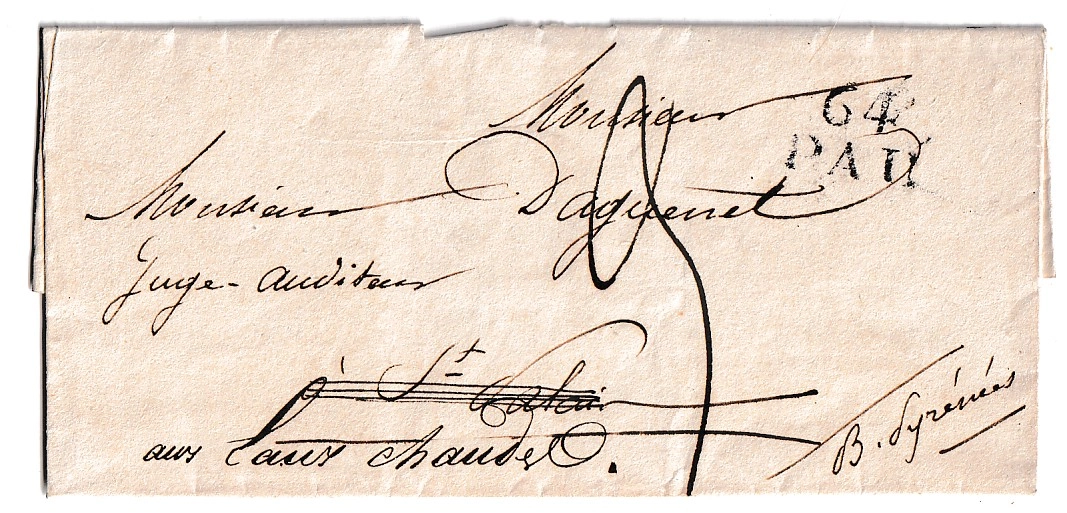 Monsieur
64
PAU
Monsieur Daguenet
Juge-auditeur
à St Palais
aux Eaux chaudes.
B. Pyrénées